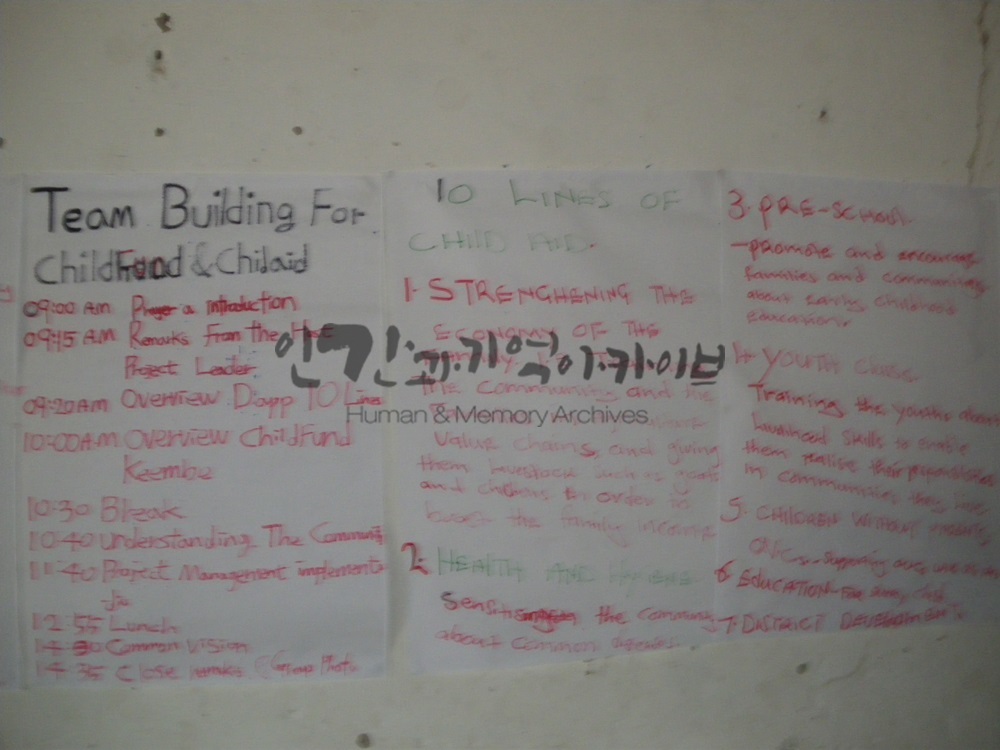 Team Building For
ChildFund & Chilaid
09:00 AM Prayer a Introduction
09:15 AM Remarks From the Host
Project Leader.
09:20AM Overview Dapp 10 Line
10:00AM Overview ChildFund
Keembe
10:30 Bleak
10:40 Understanding The Community
11:40 Project Management implementa
-tio
12:55 Lunch
Common Vision
14:35 Close Group Photo
10 LINES OF
CHILD AID.
1. STRENGHENING THE
ECONOMY OF THE
the Community and the
Value chains, and giving
them livestock such as goats
and chickens in order to
boost the family income
2. HEALTH AND HYGIENE
the community
about common diseases
3. PRE-SCHOOL
-promote and encourage
families and community
about Early childhood
education
4 YOUTH
Training the youths about
skills to enable
them realise their
in communities they live
5. CHILDREN WITHOUT PARENTS
6 EDUCATION FOR
7. DISTRICT DEVELOPMENT
인간과기억아카이브
Human & Memory Archives